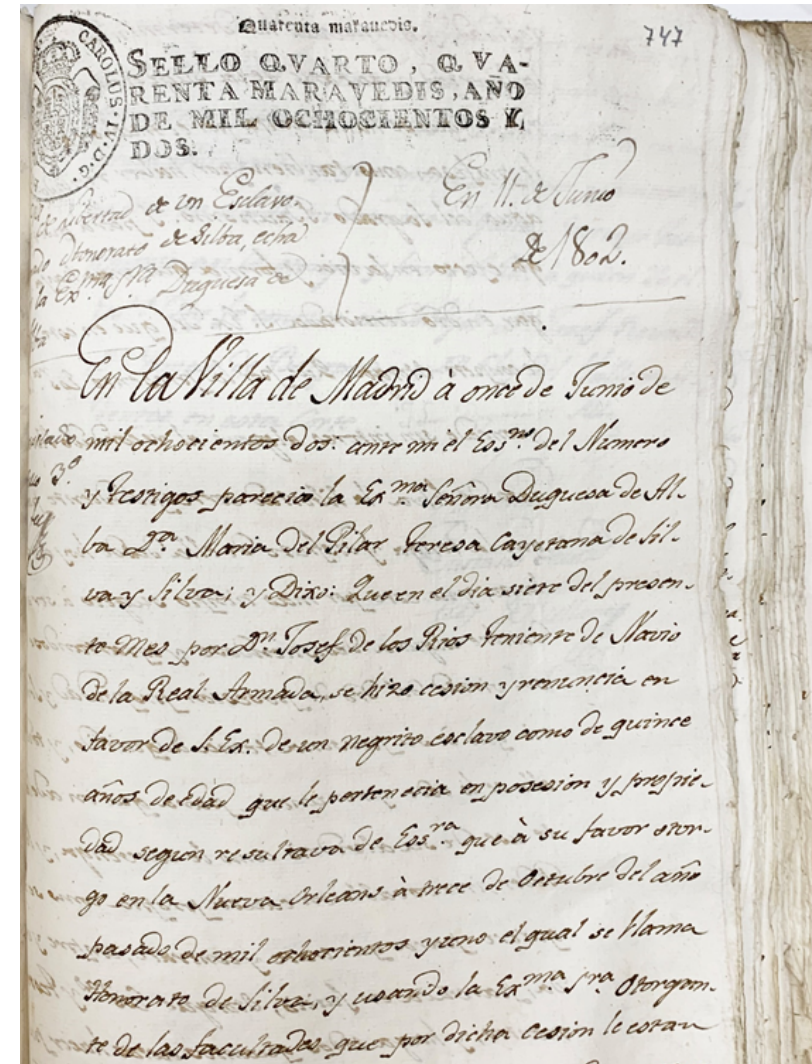 Quarenta maravedis.
747
CAROLUS·IV·D·G·
SELLO QVARTO, QVA-
RENTA MARAVEDIS, AÑO
DE MIL OCHOCIENTOS Y
DOS.
libertad de un Esclavo
Honorato de Silba, echa
la Ex.ma S.ra Duquesa de
En 11. de Junio
De 1802.
En la Villa de Madrid à once de Junio de
mil ochocientos dos: ante mi el Ess.no del Numero
y testigos parecio la Ex.ma Señora Duquesa de Al-
ba D.a Maria del Pilar Teresa Cayetana de Sil-
va y Silva; y Dixo: Que en el dia siete del presen-
te Mes por D.n Josef de los Rios teniente de Navio
de la Real Armada, se hizo cesion y renuncia en
favor de S. Ex. de un negrito esclavo como de quince
años de edad que le pertenecia en posesion y propie-
dad segun resultava de Ess.ra que à su favor otor-
go en la Nueva Orleans à trece de Octubre del año
pasado de mil ochocientos y uno el qual se llama
Honorato de Silva, y usando la Ex.ma S.ra Otorgan-
te de las facultades que por dicha cesion le estan